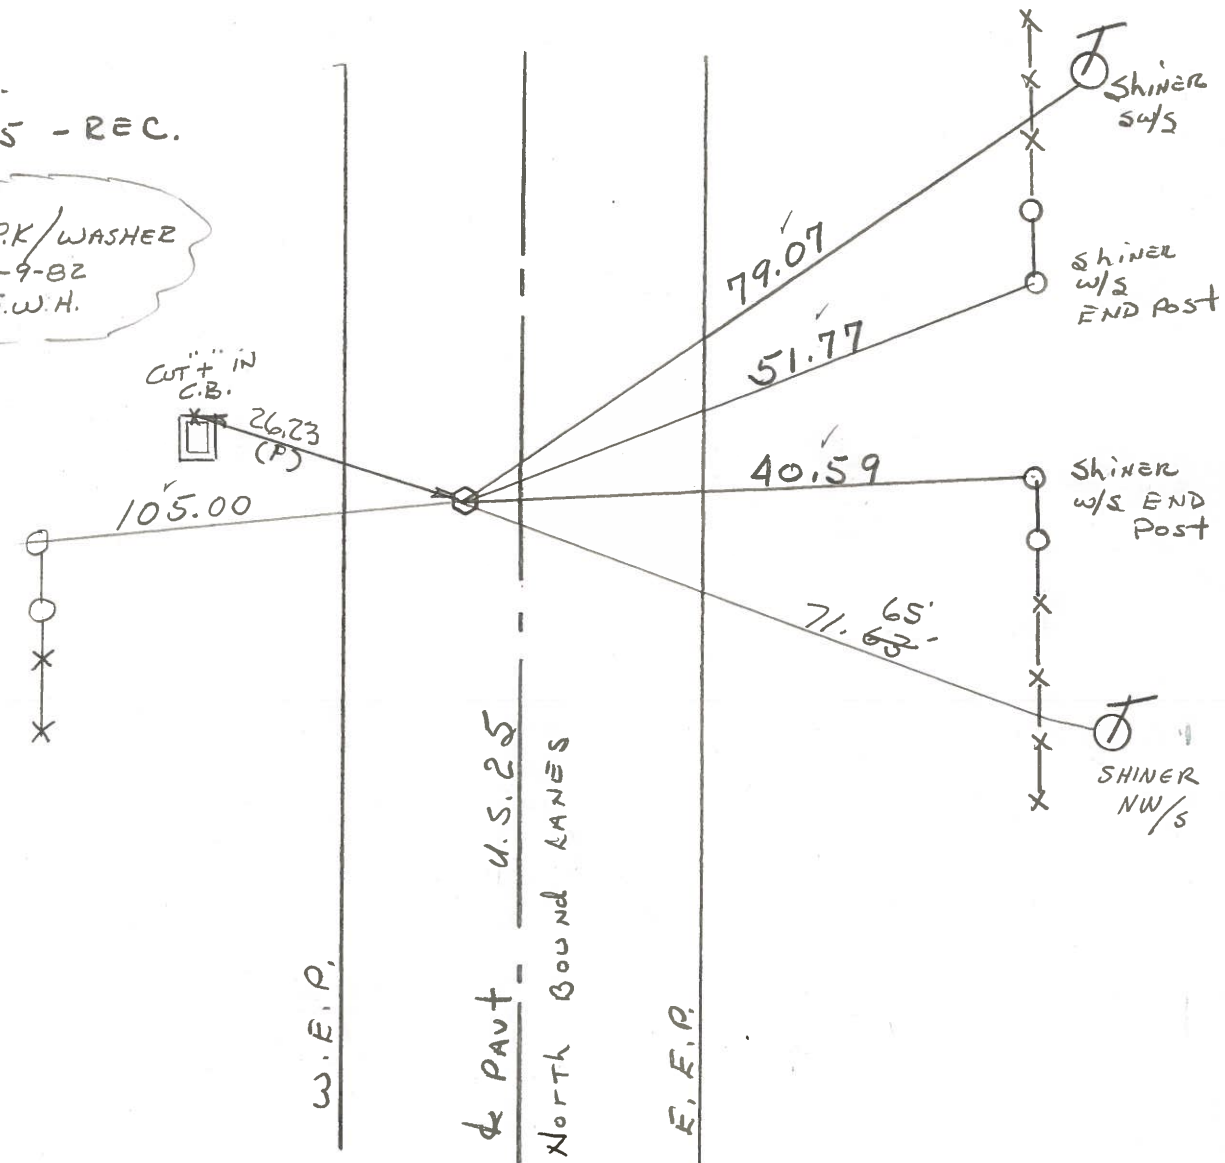 5 - REC.
P.K/WASHER
-9-82
E.W.H.
CUT "+" IN
C.B.
26.23
(P)
105.00
79.07
51.77
40.59
71.
65'
63'
ShiNER
SW/S
ShiNER
W/S
END Post
ShiNER
W/S END
Post
SHINER
NW/S
W.E.P.
℄ PAVt U.S. 25
NORTh BOUNd LANES
E.E.P.